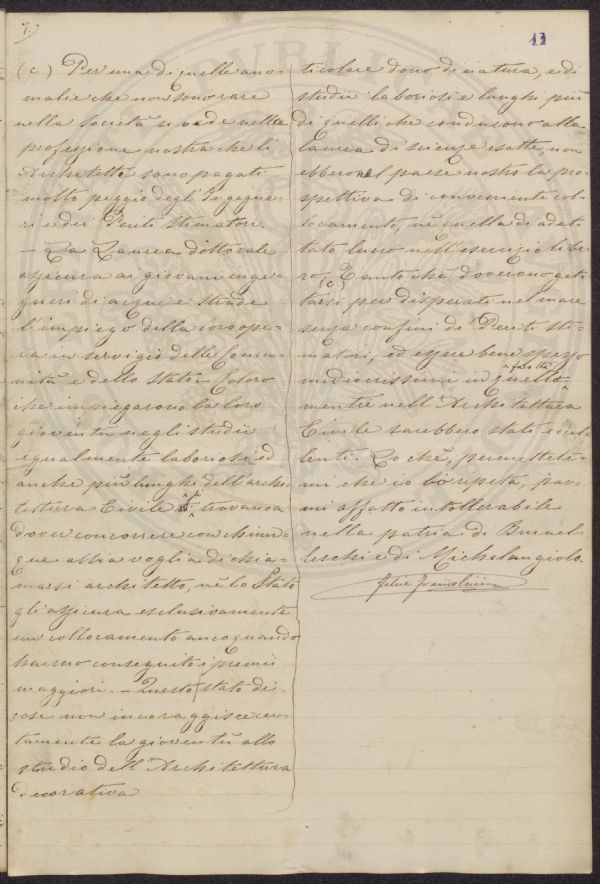 7.)
43
(c) Per una di quelle ano-
malie che non sono rare
nella Società si vede nella
professione nostra che li
Architetti sono pagati
molto peggio degl'Ingegne-
ri e dei Periti stimatori.
— La Laurea dottorale
assicura ai giovani inge-
gneri di acque e strade
l'impiego della loro ope-
ra in servigio delle Comu-
nità e dello Stato. — Coloro
che impiegarono la loro
gioventù negli studii
egualmente laboriosi ed
anche più lunghi dell'archi-
tettura Civile si trovano a
dover concorrere con chiun-
que abbia voglia di chia-
marsi architetto, nè lo Stato
gli assicura esclusivamente
un collocamento anco quando
hanno conseguito i premii
maggiori. — Questo stato di
cose non incoraggisce cer-
tamente la gioventù allo
studio dell'Architettura
decorativa
ticolare dono di natura, e di
studii laboriosi e lunghi più
di quelli che conducono alla
Laurea di scienze esatte, non
ebbero nel paese nostro la pro-
spettiva di conveniente col-
locamento, nè quella di adat-
tato lucro nell'esercizio libe-
ro (c). Tanto chè doverono get-
tarsi per disperati nel mare
senza confini di Periti sti-
matori, ed essere bene spesso
mediocrissimi in quella facoltà
mentre nell'Architettura
Civile sarebbero stati eccel-
lenti. Lo chè, permettete-
mi che io lo ripeta, par-
mi affatto intollerabile
nella patria di Brunel-
leschi e di Michelangiolo.